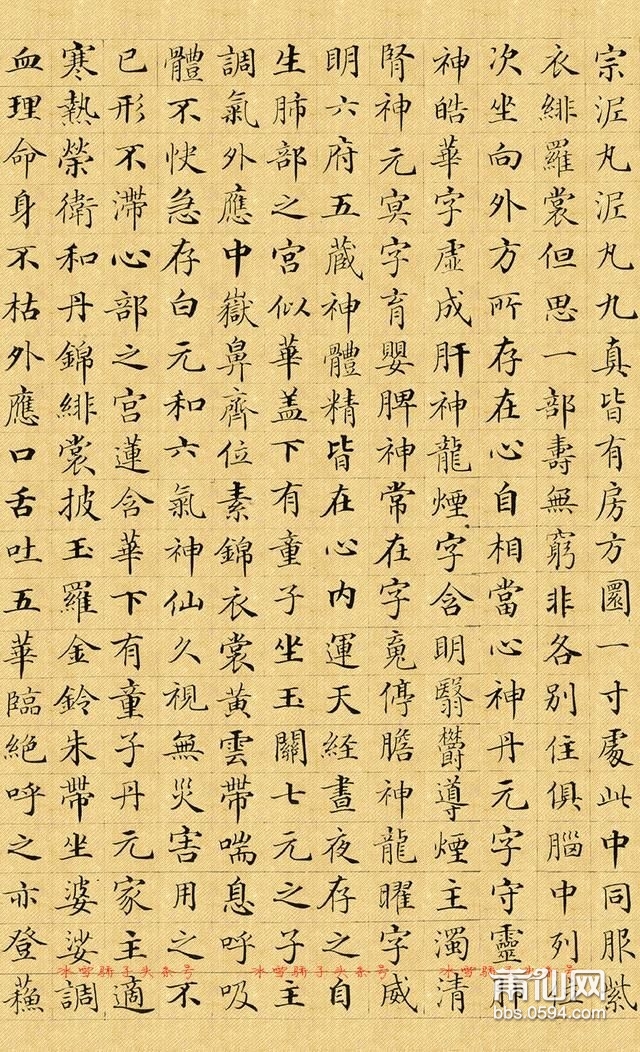 宗泥丸泥丸九真皆有房方圓一寸處此中同服紫
衣緋羅裳但思一部壽無窮非各別住俱腦中列位
次坐向外方所存在心自相當心神丹元字守靈肺
神皓華字虛成肝神龍煙字含明翳鬱導煙主濁清
腎神元冥字育嬰脾神常在字魂停膽神龍曜字威
明六府五藏神體精皆在心內運天經晝夜存之自
生肺部之宮似華蓋下有童子坐玉關七元之子主
調氣外應中嶽鼻齊位素錦衣裳黃雲帶喘息呼吸
體不快急存白元和六氣神仙久視無災害用之不
已形不滯心部之宮蓮含華下有童子丹元家主適
寒熱榮衛和丹錦緋裳披玉羅金鈴朱帶坐婆娑調
血理命身不枯外應口舌吐五華臨絕呼之亦登蘓
莆仙网
bbs.0594.com